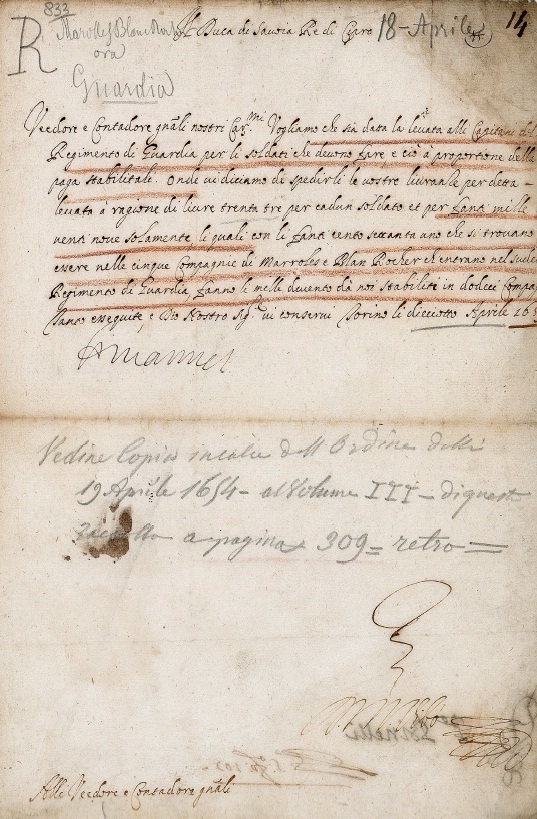 833
R
Marolles Blanc Rocher
ora
Guardia
Il Duca di Sauoia Re di Cipro
18 - Aprile
14
Veedore e Contadore gñali nostri Car.mi Vogliamo che sia data la leuata alli Capitani del
Regimento di Guardia per li soldati che deuono fare e ciò à proportione della
paga stabilitale. Onde ui diciamo di spedirli le vostre liuranze per detta
leuata à ragione di liure trenta tre per cadun soldato et per fanti mille
venti noue solamente, li quali con li fanti cento settanta uno che si trouano
essere nelle cinque Compagnie de Marroles e Blan Rocher ch'entrano nel sudetto
Regimento di Guardia, fanno li mille ducento da noi stabiliti in dodeci Compag
Tanto esseguite, e Dio Nostro Sig.re ui conserui Torino li dieciotto Aprile 165
Vedine Copia in calce dell Ordine delli
19 Aprile 1654 - al Volume III - di questa
Raccolta a pagina 309 = retro =
Alli Veedore e Contadore gñali